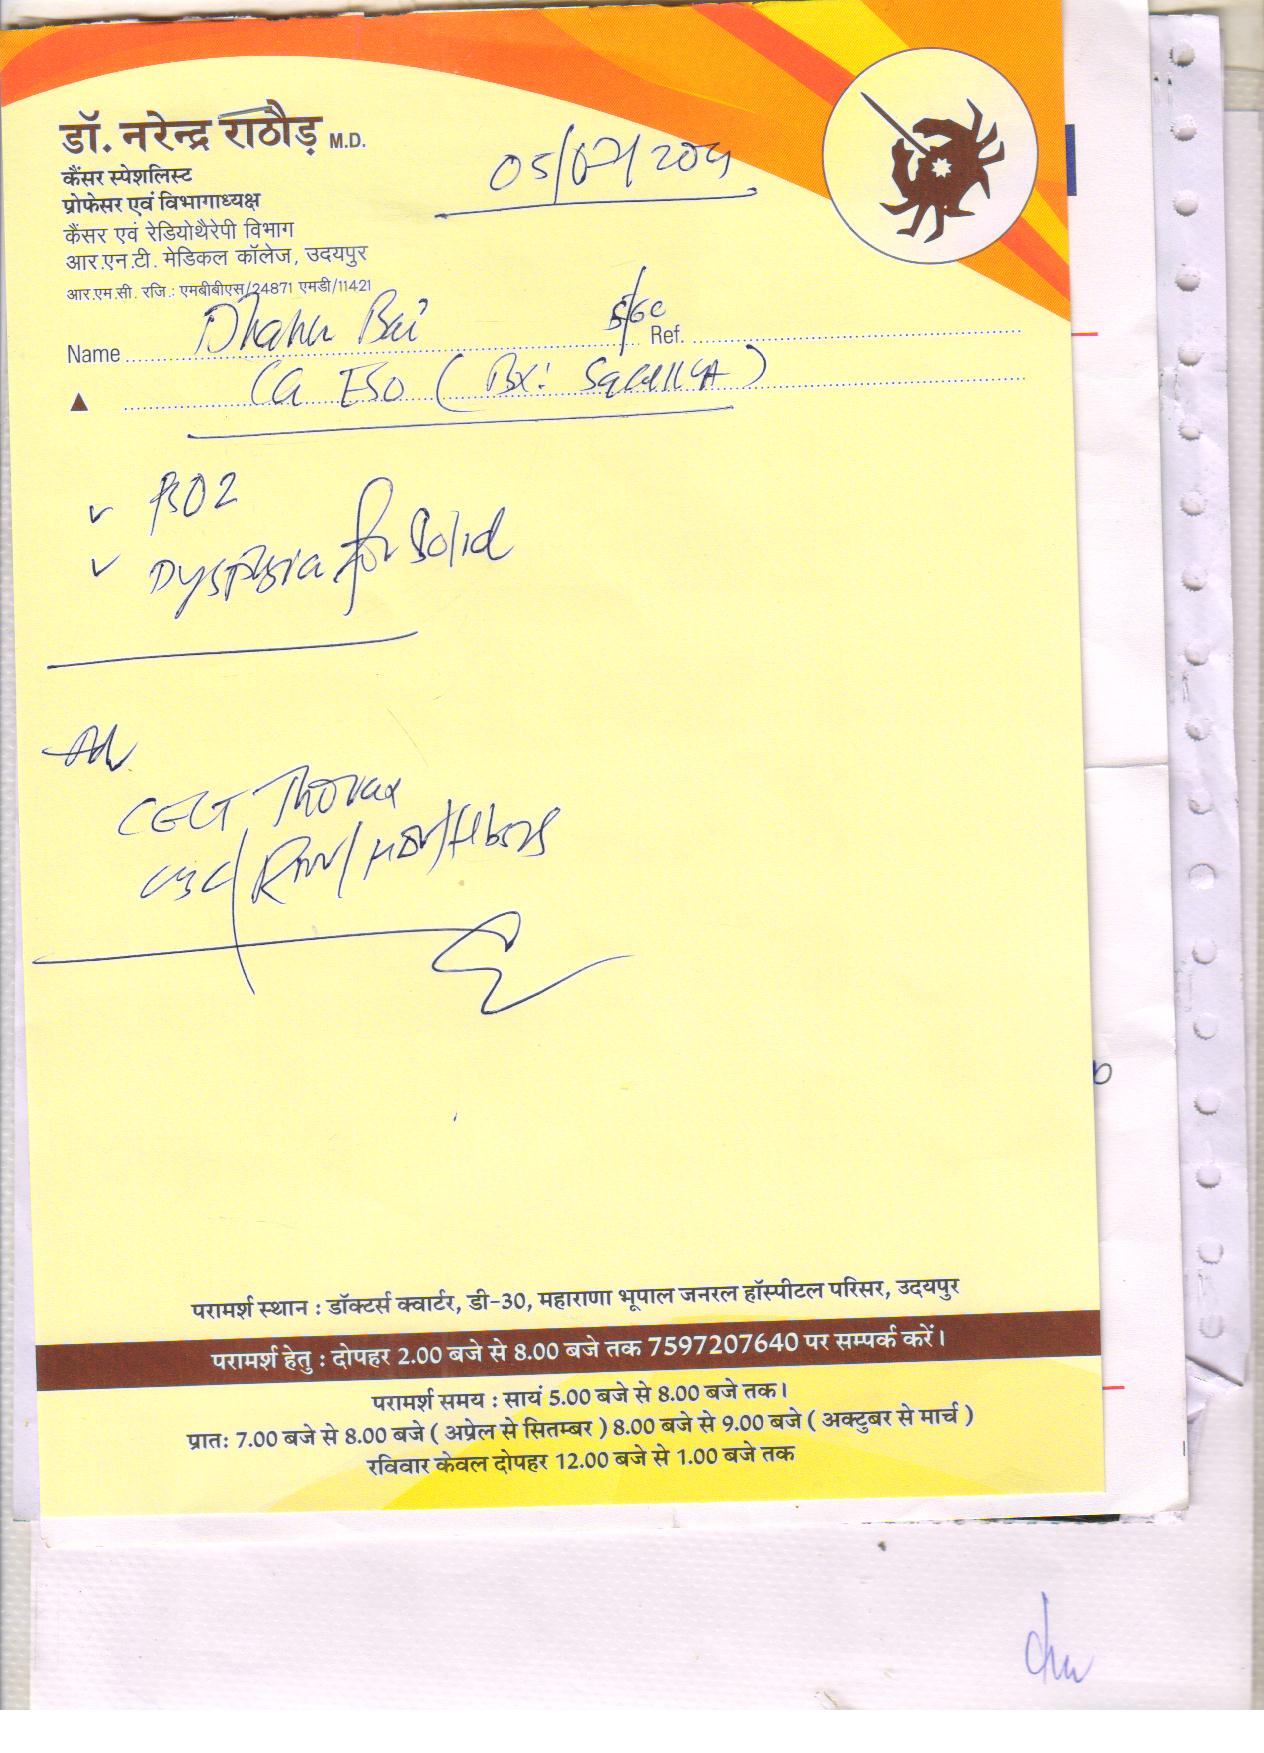 डॉ. नरेन्द्र राठौड़ M.D.
05/07/
कैंसर स्पेशलिस्ट
प्रोफेसर एवं विभागाध्यक्ष
कैंसर एवं रेडियोथैरेपी विभाग
आर.एन.टी. मेडिकल कॉलेज, उदयपुर
आर.एम.सी. रजि.: एमबीबीएस/24871 एमडी/11421
Name Bai Ref.
Ca ESO ( BX: )
for Solid
Adv
CECT Thorax
CBC/
परामर्श स्थान : डॉक्टर्स क्वार्टर, डी-30, महाराणा भूपाल जनरल हॉस्पीटल परिसर, उदयपुर
परामर्श हेतु : दोपहर 2.00 बजे से 8.00 बजे तक 7597207640 पर सम्पर्क करें।
परामर्श समय : सायं 5.00 बजे से 8.00 बजे तक।
प्रातः 7.00 बजे से 8.00 बजे ( अप्रेल से सितम्बर ) 8.00 बजे से 9.00 बजे ( अक्टुबर से मार्च )
रविवार केवल दोपहर 12.00 बजे से 1.00 बजे तक